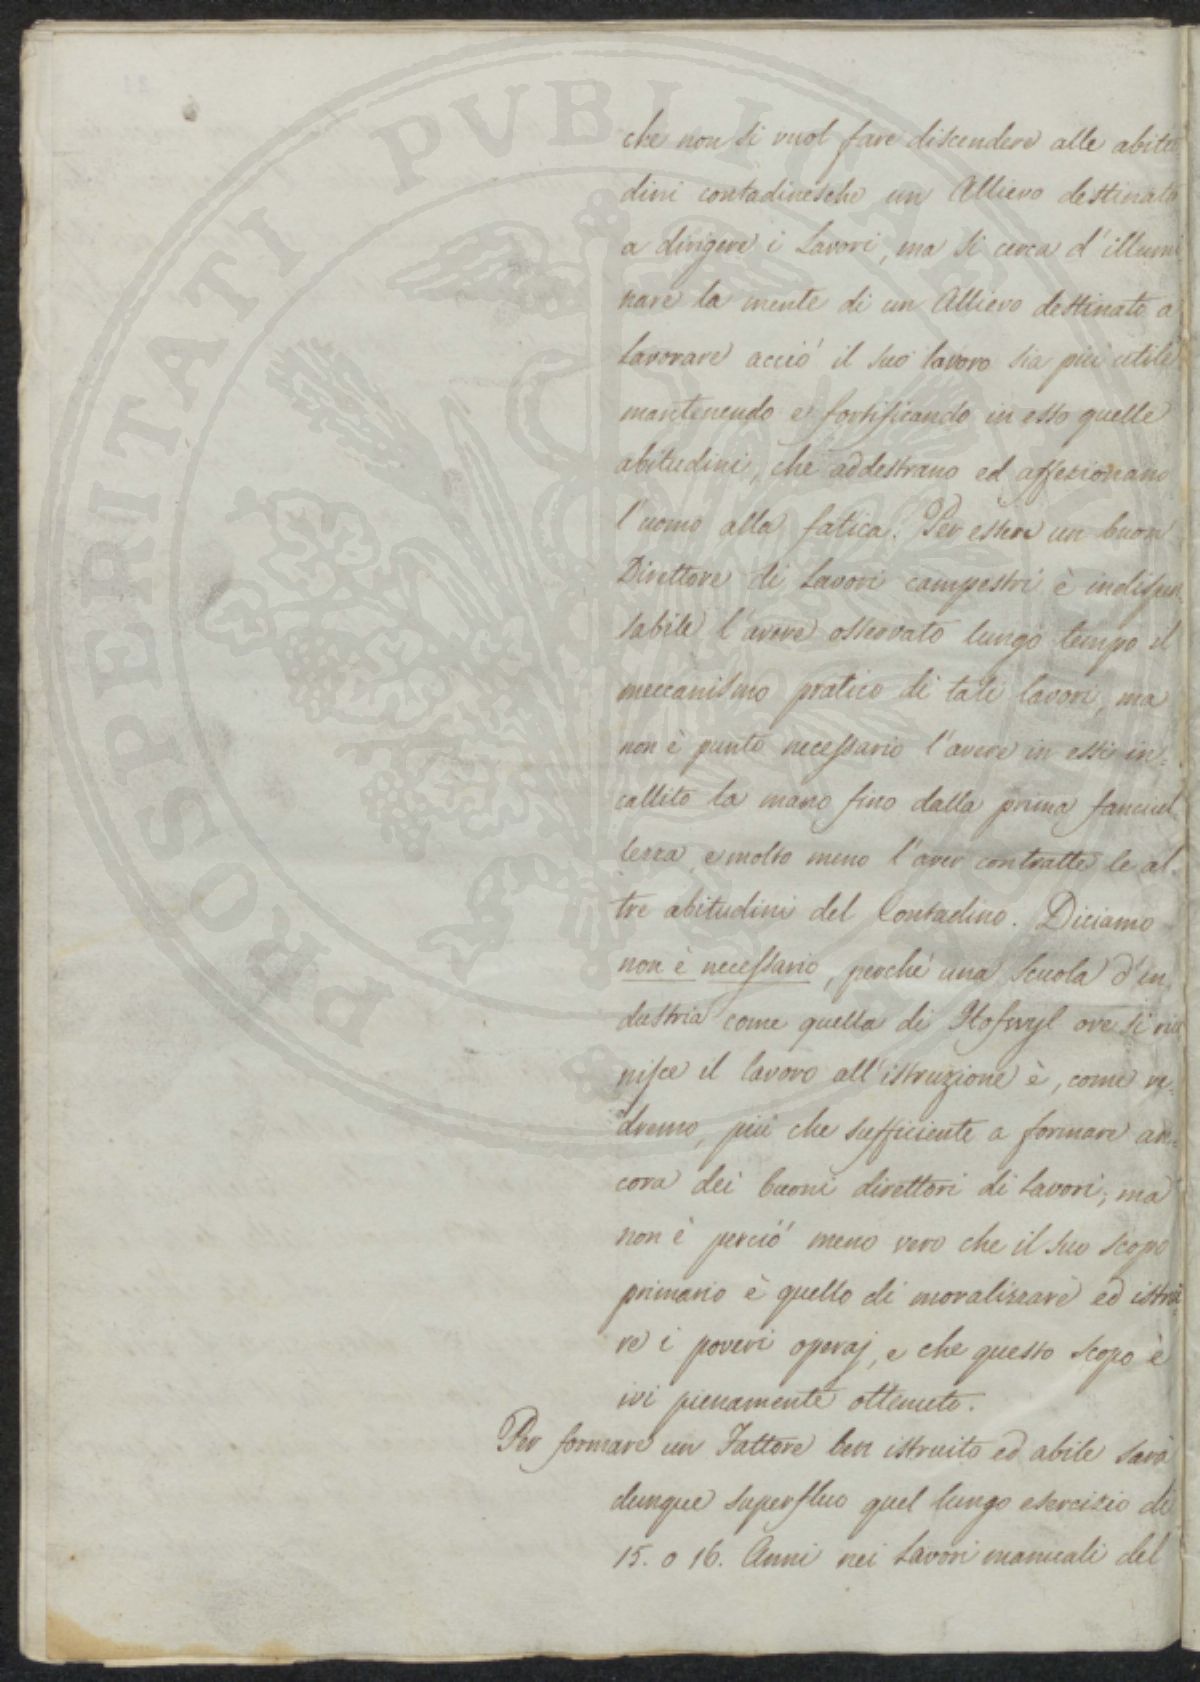 PROSPERITATI PVBLICAE
che non si vuol fare discendere alle abitu
dini contadinesche un Allievo destinato
a dirigere i Lavori, ma si cerca d'illumi
nare la mente di un Allievo destinato a
Lavorare acciò il suo lavoro sia più utile
mantenendo e fortificando in esso quelle
abitudini, che addestrano ed affezionano
l'uomo alla fatica. Per essere un buon
Direttore di Lavori campestri è indispen
sabile l'avere osservato lungo tempo il
meccanismo pratico di tali lavori, ma
non è punto necessario l'avere in essi in=
callito la mano fino dalla prima fanciul
lezza, e molto meno l'aver contratte le al
tre abitudini del Contadino. Diciamo
non è necessario, perché una Scuola d'in
dustria come quella di Hofwyl ove si riu
nisce il lavoro all'istruzione è, come ve
dremo, più che sufficiente a formare an=
cora dei buoni direttori di Lavori; ma
non è perciò meno vero che il suo scopo
primario è quello di moralizzare ed istrui
re i poveri operaj, e che questo scopo è
ivi pienamente ottenuto.
Per formare un Fattore ben istruito ed abile sarà
dunque superfluo quel lungo esercizio di
15. o 16. Anni nei Lavori manuali del